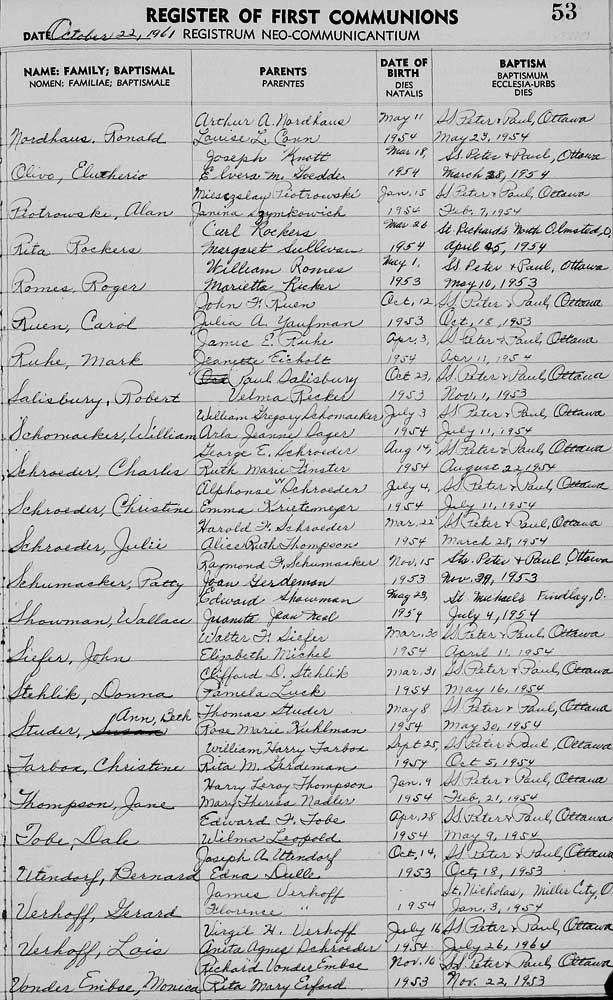 REGISTER OF FIRST COMMUNIONS 53
DATE October 22, 1961 REGISTRUM NEO-COMMUNICANTIUM
NAME: FAMILY; BAPTISMAL PARENTS DATE OF BIRTH BAPTISM
NOMEN: FAMILIAE; BAPTISMALE PARENTES DIES NATALIS BAPTISMUM ECCLESIA-URBS DIES
Arthur A. Nordhaus May 11 SS Peter & Paul, Ottawa
Nordhaus, Ronald Louise L. Conn 1954 May 23, 1954
Joseph Knott Mar 18, SS. Peter & Paul, Ottawa
Olivo, Elutherio E. Vera M. 1954 March 28, 1954
Mieszslay Piotrowski Jan. 15 SS Peter & Paul, Ottawa
Piotrowski, Alan Janina Szymkowich 1954 Feb. 7, 1954
Carl Rockers Mar 26 St Richards North Olmsted, O.
Rita Rockers Margaret Sullivan 1954 April 25, 1954
William Romes May 1, SS. Peter & Paul, Ottawa
Romes, Roger Marietta Ricker 1953 May 10, 1953
John F. Ruen Oct. 12 SS Peter & Paul, Ottawa
Ruen, Carol Julia A. Kaufman 1953 Oct. 18, 1953
James E. Ruhe Apr. 3, SS Peter & Paul, Ottawa
Ruhe, Mark Jeanette Eickolt 1954 Apr 11, 1954
Paul Salisbury Oct 23, SS. Peter & Paul, Ottawa
Salisbury, Robert Velma Recker 1953 Nov. 1, 1953
William Gregory Schomacker July 3 SS Peter & Paul, Ottawa
Schomacker, William Arla Jeanne Dager 1954 July 11, 1954
George E. Schroeder Aug 14, SS Peter & Paul, Ottawa
Schroeder, Charles Ruth Marie Finster 1954 August 22, 1954
Alphonse W Schroeder July 4, SS Peter & Paul, Ottawa
Schroeder, Christine Emma Krietemeyer 1954 July 11, 1954
Harold F. Schroeder Mar. 22 SS Peter & Paul, Ottawa
Schroeder, Julie Alice Ruth Thompson 1954 March 28, 1954
Raymond F. Schumacker Nov. 15 Sts. Peter & Paul, Ottawa
Schumacker, Patty Joan Gerdeman 1953 Nov. 29, 1953
Edward Showman May 23, St Michaels Findlay, O.
Showman, Wallace Juanita Jean Neal 1954 July 4, 1954
Walter F. Siefer Mar. 30 SS Peter & Paul, Ottawa
Siefer, John Elizabeth Michel 1954 April 11, 1954
Clifford D. Stehlik Mar. 31 SS Peter & Paul, Ottawa
Stehlik, Donna Pamela Luck 1954 May 16, 1954
Ann, Beth Thomas Studer May 8 SS Peter & Paul, Ottawa
Studer, Susan Rose Marie Kuhlman 1954 May 30, 1954
William Harry Tarbox Sept 25, SS Peter & Paul, Ottawa
Tarbox, Christine Rita M. Gerdeman 1954 Oct 5, 1954
Harry Leroy Thompson Jan. 9 SS Peter & Paul, Ottawa
Thompson, Jane Mary Theresa Nadler 1954 Feb. 21, 1954
Edward F. Tobe Apr. 28 SS Peter & Paul, Ottawa
Tobe, Dale Wilma Leopold 1954 May 9, 1954
Joseph A. Utendorf Oct. 14, SS Peter & Paul, Ottawa
Utendorf, Bernard Edna Dulle 1953 Oct. 18, 1953
James Verhoff St. Nicholas, Miller City, O
Verhoff, Gerard Florence " 1954 Jan. 3, 1954
Virgil H. Verhoff July 16 SS Peter & Paul, Ottawa
Verhoff, Lois Anita Agnes Schroeder 1954 July 26, 1964
Richard Vonder Embse Nov. 16 SS Peter & Paul, Ottawa
Vonder Embse, Monica Rita Mary Erford 1953 Nov. 22, 1953